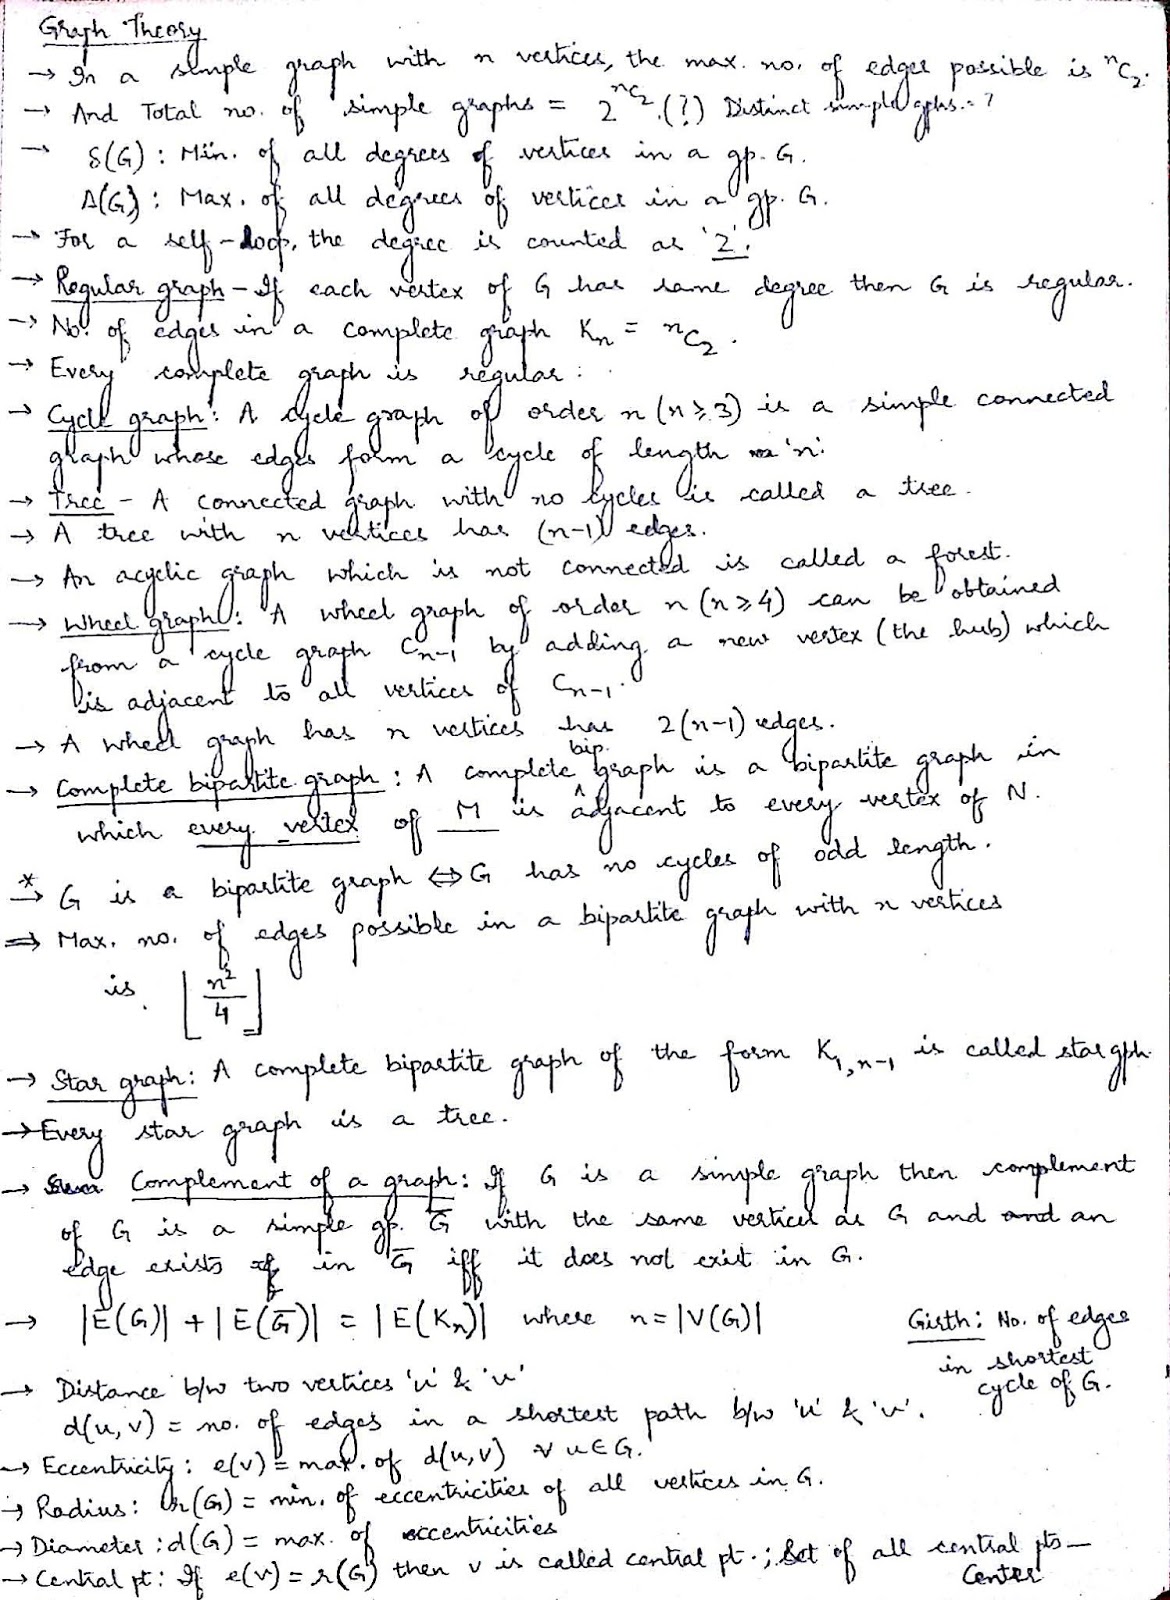 Graph Theory
→ In a simple graph with n vertices, the max. no. of edges possible is ⁿC₂.
→ And Total no. of simple graphs = 2^(ⁿC₂). (?) Distinct simple gphs. = ?
→ δ(G) : Min. of all degrees of vertices in a gp. G.
Δ(G) : Max. of all degrees of vertices in a gp. G.
→ For a self-loop, the degree is counted as '2'.
→ Regular graph – If each vertex of G has same degree then G is regular.
→ No. of edges in a complete graph Kₙ = ⁿC₂.
→ Every complete graph is regular.
→ Cycle graph : A cycle graph of order n (n ≥ 3) is a simple connected
graph whose edges form a cycle of length 'n'.
→ Tree – A connected graph with no cycles is called a tree.
→ A tree with n vertices has (n-1) edges.
→ An acyclic graph which is not connected is called a forest.
→ Wheel graph : A wheel graph of order n (n ≥ 4) can be obtained
from a cycle graph Cₙ₋₁ by adding a new vertex (the hub) which
is adjacent to all vertices of Cₙ₋₁.
→ A wheel graph has n vertices has 2(n-1) edges.
→ Complete bipartite graph : A complete bip. graph is a bipartite graph in
which every vertex of M is adjacent to every vertex of N.
*→ G is a bipartite graph ⇔ G has no cycles of odd length.
⇒ Max. no. of edges possible in a bipartite graph with n vertices
is. ⌊n²/4⌋
→ Star graph : A complete bipartite graph of the form K₁,ₙ₋₁ is called star gph.
→ Every star graph is a tree.
→ Complement of a graph : If G is a simple graph then complement
of G is a simple gp. G̅ with the same vertices as G and and an
edge exists in G̅ iff it does not exist in G.
→ |E(G)| + |E(G̅)| = |E(Kₙ)| where n = |V(G)|
Girth : No. of edges
in shortest
cycle of G.
→ Distance b/w two vertices 'u' & 'v'
d(u, v) = no. of edges in a shortest path b/w 'u' & 'v'.
→ Eccentricity : e(v) = max. of d(u, v) ∀ u ∈ G.
→ Radius : r(G) = min. of eccentricities of all vertices in G.
→ Diameter : d(G) = max. of eccentricities
→ Central pt : If e(v) = r(G) then v is called central pt. ; Set of all central pts –
Center